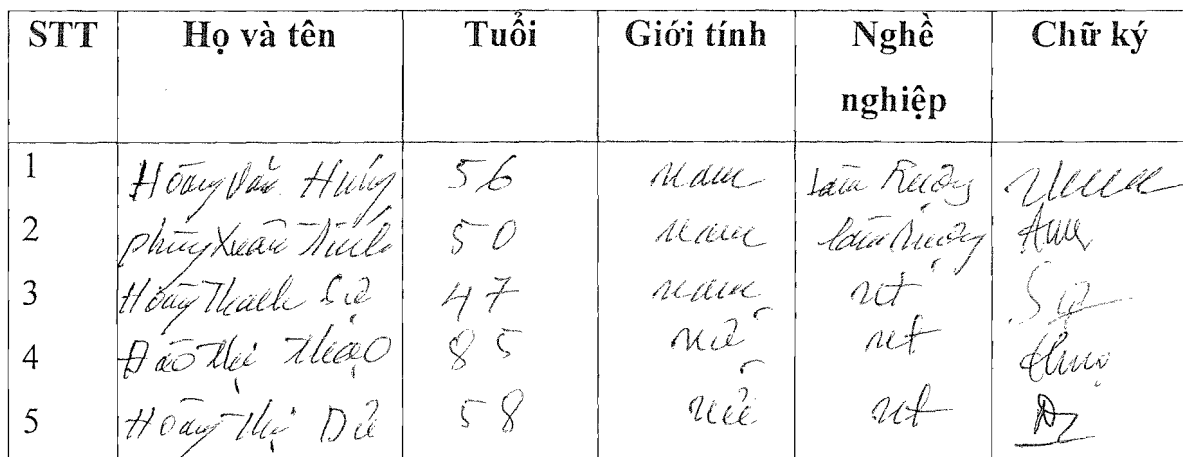 STT Họ và tên Tuổi Giới tính Nghề nghiệp Chữ ký
1 Hoàng Văn Hùng 56 nam Làm Ruộng
2 Phùng Xuân 50 nam làm ruộng
3 Hoàng Thanh Sự 47 nam nt Sự
4 Đào Thị Thạo 85 nữ nt
5 Hoàng Thị Dữ 58 nữ nt